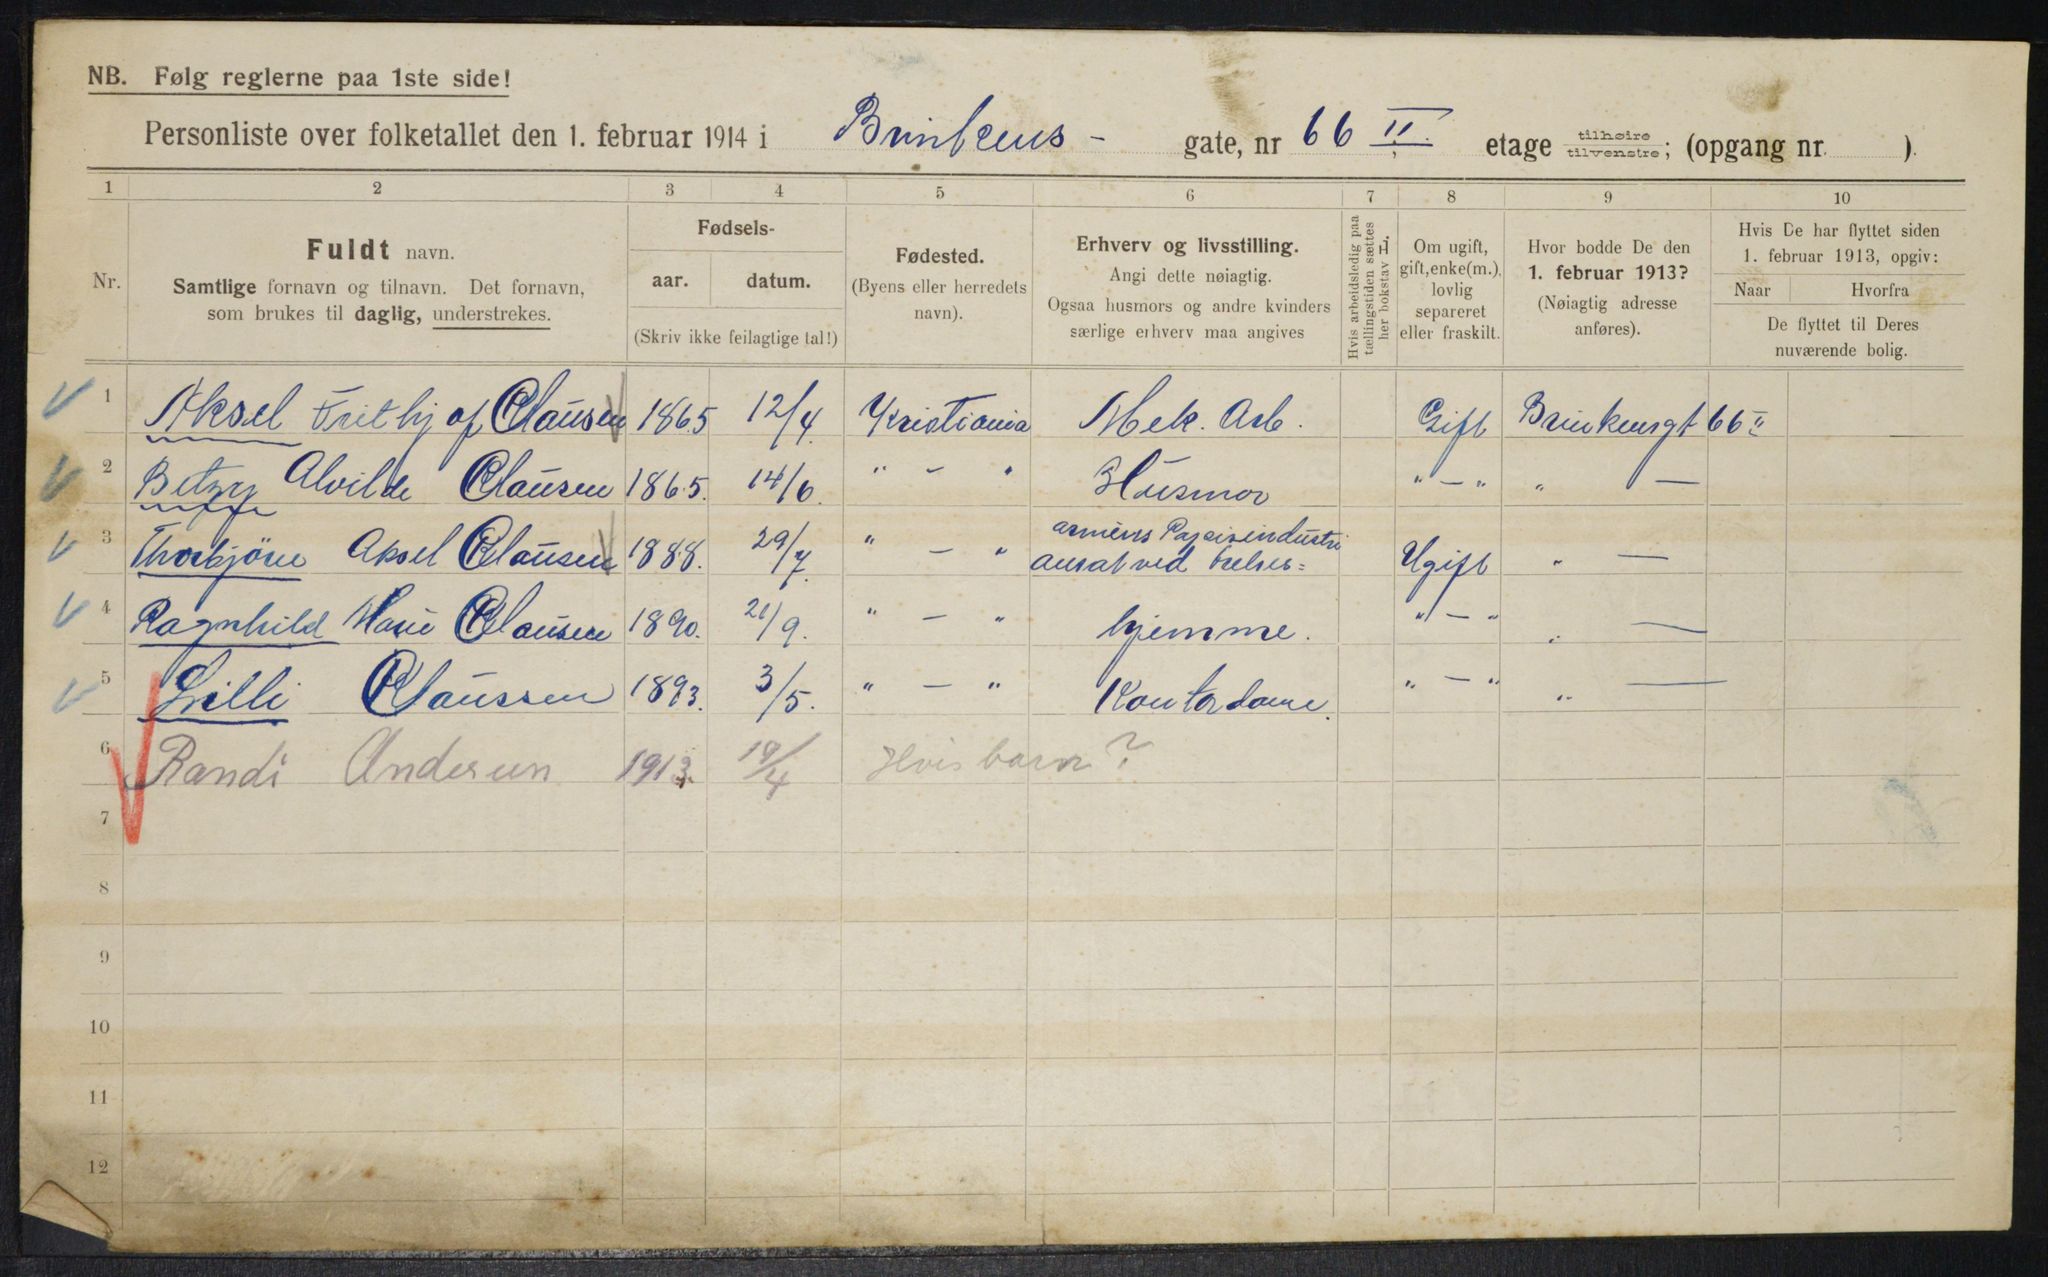 NB. Følg reglerne paa 1ste side!
Personliste over folketallet den 1. februar 1914 i Brinkens- gate, nr 66 II. etage tilhøire tilvenstre; (opgang nr. ).
1 2 3 4 5 6 7 8 9 10
Nr.
Fuldt navn.
Samtlige fornavn og tilnavn. Det fornavn,
som brukes til daglig, understrekes.
Fødsels-
aar. datum.
(Skriv ikke feilagtige tal!)
Fødested.
(Byens eller herredets
navn).
Erhverv og livsstilling.
Angi dette nøiagtig.
Ogsaa husmors og andre kvinders
særlige erhverv maa angives
Hvis arbeidsledig paa
tællingstiden sættes
her bokstav L.
Om ugift,
gift, enke(m.),
lovlig
separeret
eller fraskilt.
Hvor bodde De den
1. februar 1913?
(Nøiagtig adresse
anføres).
Hvis De har flyttet siden
1. februar 1913, opgiv:
Naar Hvorfra
De flyttet til Deres
nuværende bolig.
1 Aksel Frithjof Clausen 1865 12/4. Kristiania Mek. Arb. Gift Brinkensgt 66 II
2 Betzy Alvilde Clausen 1865. 14/6. " - " Husmor " - " " —
3 Thorbjörn Aksel Clausen 1888. 29/7. " - " ansat ved frelses= armeens Ugift " —
4 Ragnhild Marie Clausen 1890. 21/9. " - " hjemme. " - " " —
5 Lilli Claussen 1893. 3/5. " - " Kontordame. " - " " —
6 Randi Andersen 1913. 19/4 Hvis barn?
7
8
9
10
11
12